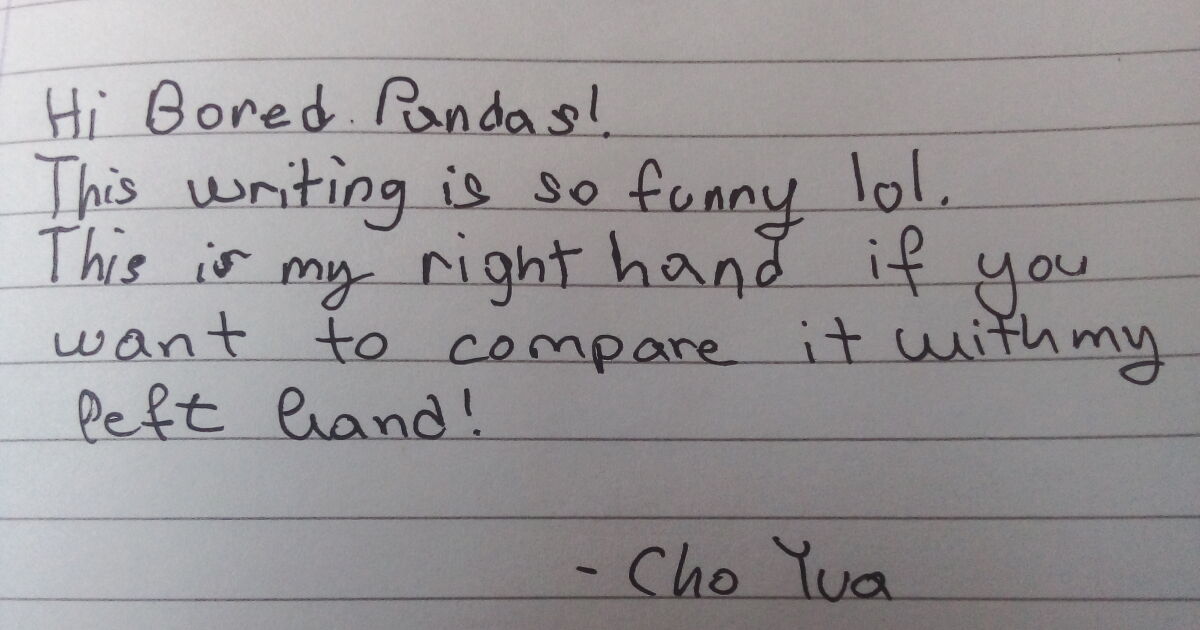 Hi Bored Pandas!
This writing is so funny lol.
This is my right hand if you
want to compare it with my
left hand!
- Cho Yua